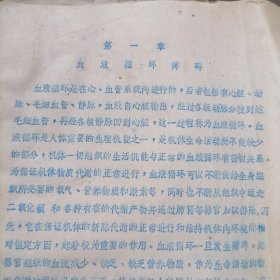 第一章
血液循环障碍
血液循环是在心、血管系统内进行的，后者包括有心脏、动
脉、毛细血管、静脉，血液自心脏输出。经过各级动脉分枝到达
毛细血管，再经各级静脉回到心脏，这一过程称为血液循环。血
液循环是人体重要的生理机能之一，是机体生命活动所不能缺少
的部分，机体一切组织的生活机能与正常的血液循环有密切关系。
为保证机体物质代谢的正常进行，血液循环可以不断供给全身组
织所必要的氧气、营养物质和激素等，同时也不断从组织中运走
二氧化碳和各种有害的代谢产物并通过肺肾等器官加以排除。因
此，它在保证机体的新陈代谢的正常进行和维持机体内环境的相
对恒定方面，起着极为重要的作用。血液循环一旦发生障碍，
器官组织的血流减少、缺乏、较乏营养物质、